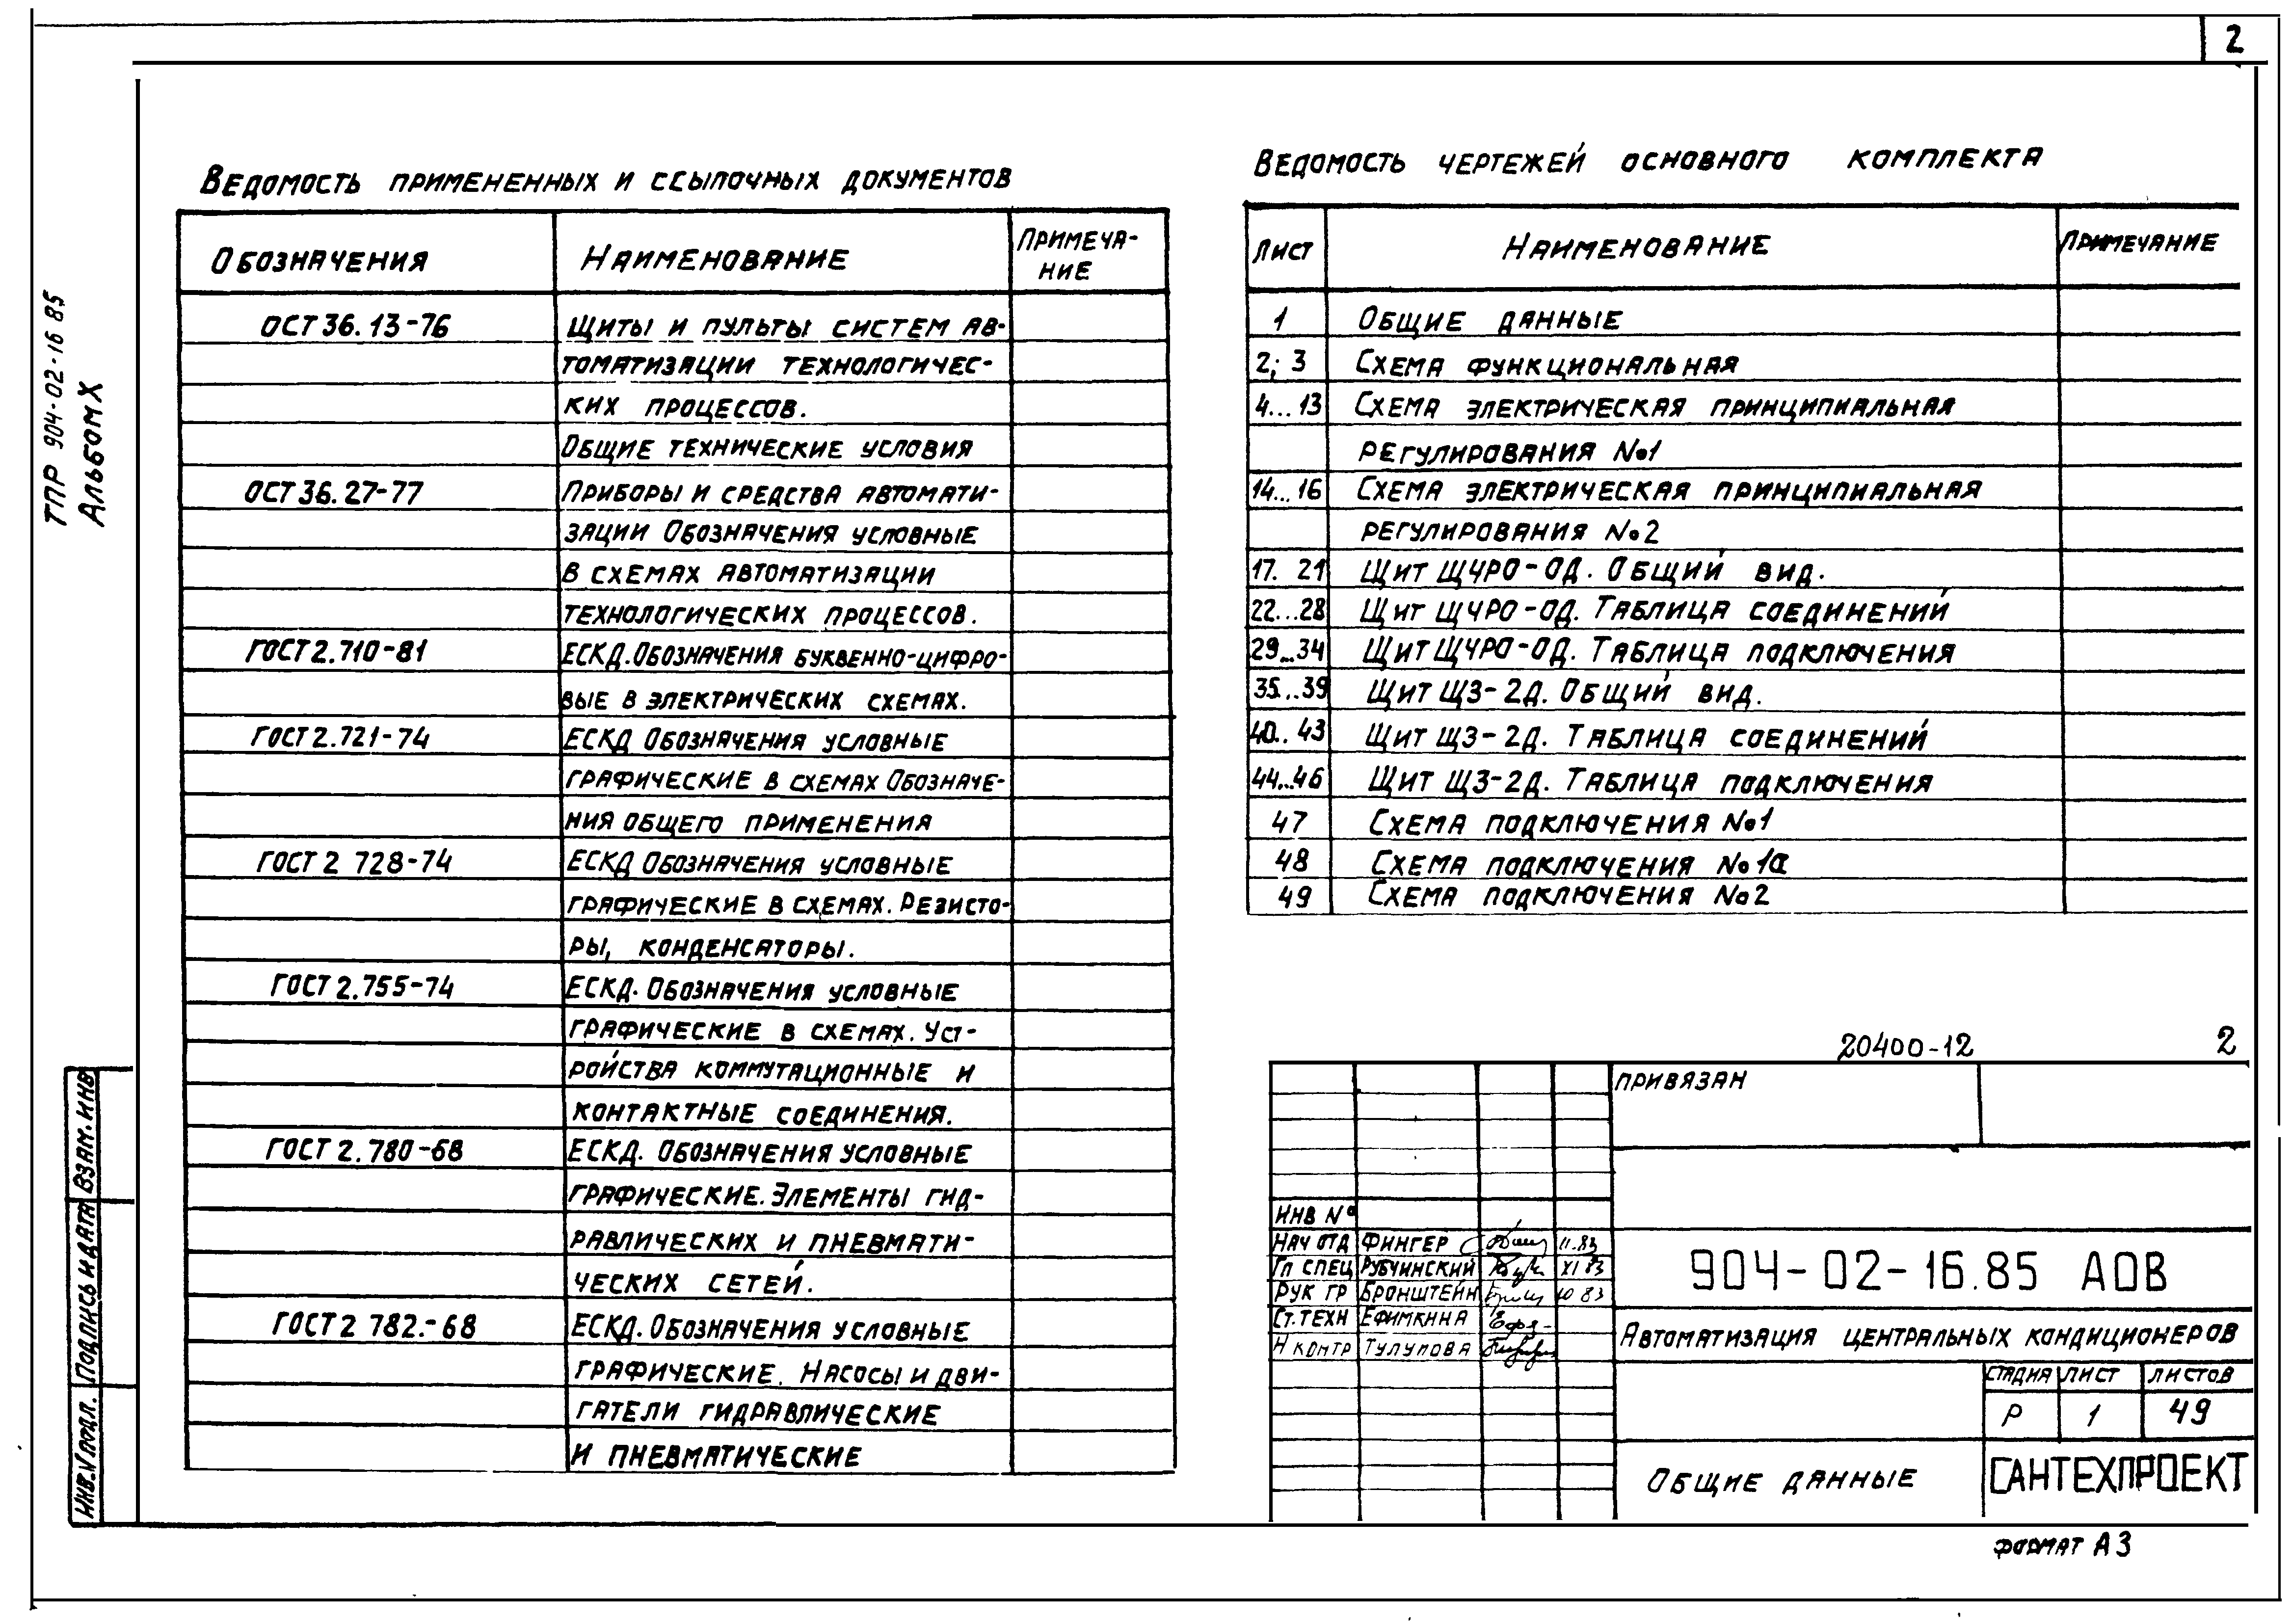 2
ТПР 904-02-16 85
Альбом X
Ведомость примененных и ссылочных документов
Обозначения Наименование Примеча-
ние
ОСТ 36.13-76 Щиты и пульты систем ав-
томатизации технологичес-
ких процессов.
Общие технические условия
ОСТ 36.27-77 Приборы и средства автомати-
зации Обозначения условные
в схемах автоматизации
технологических процессов.
ГОСТ 2.710-81 ЕСКД. Обозначения буквенно-цифро-
вые в электрических схемах.
ГОСТ 2.721-74 ЕСКД Обозначения условные
графические в схемах Обозначе-
ния общего применения
ГОСТ 2 728-74 ЕСКД Обозначения условные
графические в схемах. Резисто-
ры, конденсаторы.
ГОСТ 2.755-74 ЕСКД. Обозначения условные
графические в схемах. Уст-
ройства коммутационные и
контактные соединения.
ГОСТ 2.780-68 ЕСКД. Обозначения условные
графические. Элементы гид-
равлических и пневмати-
ческих сетей.
ГОСТ 2 782.-68 ЕСКД. Обозначения условные
графические. Насосы и дви-
гатели гидравлические
и пневматические
Ведомость чертежей основного комплекта
Лист Наименование Примечание
1 Общие данные
2; 3 Схема функциональная
4...13 Схема электрическая принципиальная
регулирования №1
14...16 Схема электрическая принципиальная
регулирования №2
17. 21 Щит ЩЧРО-ОД. Общий вид.
22...28 Щит ЩЧРО-ОД. Таблица соединений
29...34 Щит ЩЧРО-ОД. Таблица подключения
35...39 Щит ЩЗ-2Д. Общий вид.
40..43 Щит ЩЗ-2Д. Таблица соединений
44...46 Щит ЩЗ-2Д. Таблица подключения
47 Схема подключения №1
48 Схема подключения №1а
49 Схема подключения №2
20400-12 2
Привязан
Инв №
Нач отд Фингер 11.83
Гл спец Рубчинский XI 83
Рук гр Бронштейн 10 83
Ст. техн Ефимкина
Н контр Тулупова
904-02-16.85 АОВ
Автоматизация центральных кондиционеров
Стадия Лист Листов
Р 1 49
Общие данные
САНТЕХПРОЕКТ
Формат А3
Взам. инв
Подпись и дата
Инв. № подл.